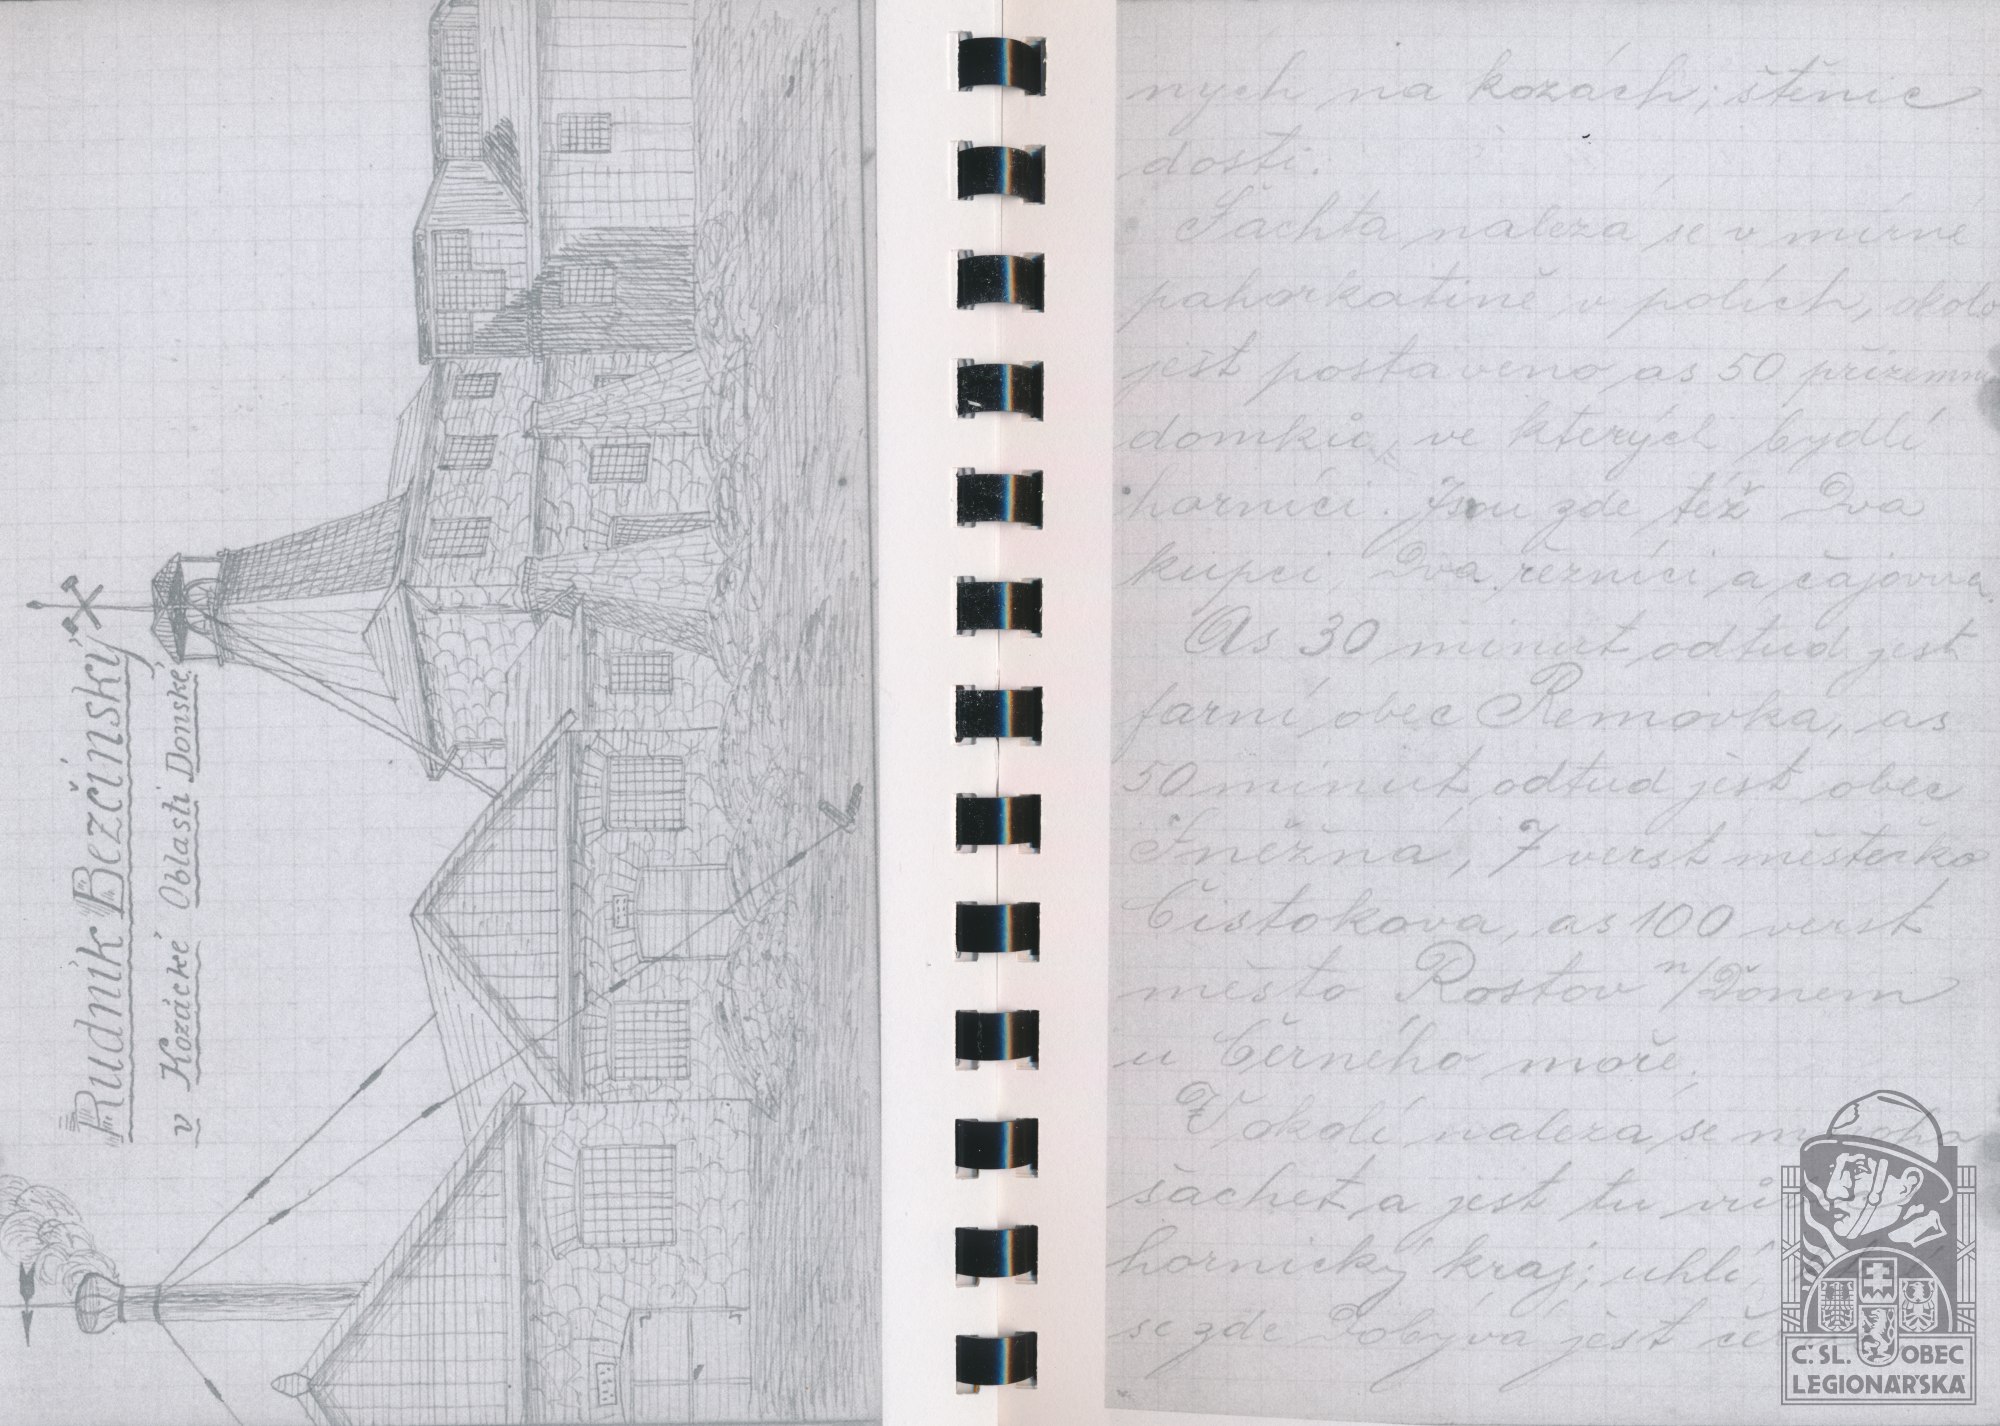 Rudník Bezčinský
v Kozácké Oblasti Donské
nych na kozách; štěnic
dosti.
Šachta naleza se v mírné
pahorkatině v polích, okolo
jest postaveno as 50 přízemn
domků, ve kterých bydlí
horníci. Jsou zde též dva
kupci, dva řezníci a čajovna.
As 30 minut odtud jest
farní obec Removka, as
50 minut odtud jest obec
Sněžná, 7 verst městečko
Čistokova, as 100 verst
město Rostov n/Donem
u Černého moře.
V okolí naleza se mnoha
šachet a jest tu
hornický kraj; uhlí,
se zde dobývá jest
Č. SL. OBEC
LEGIONÁŘSKÁ